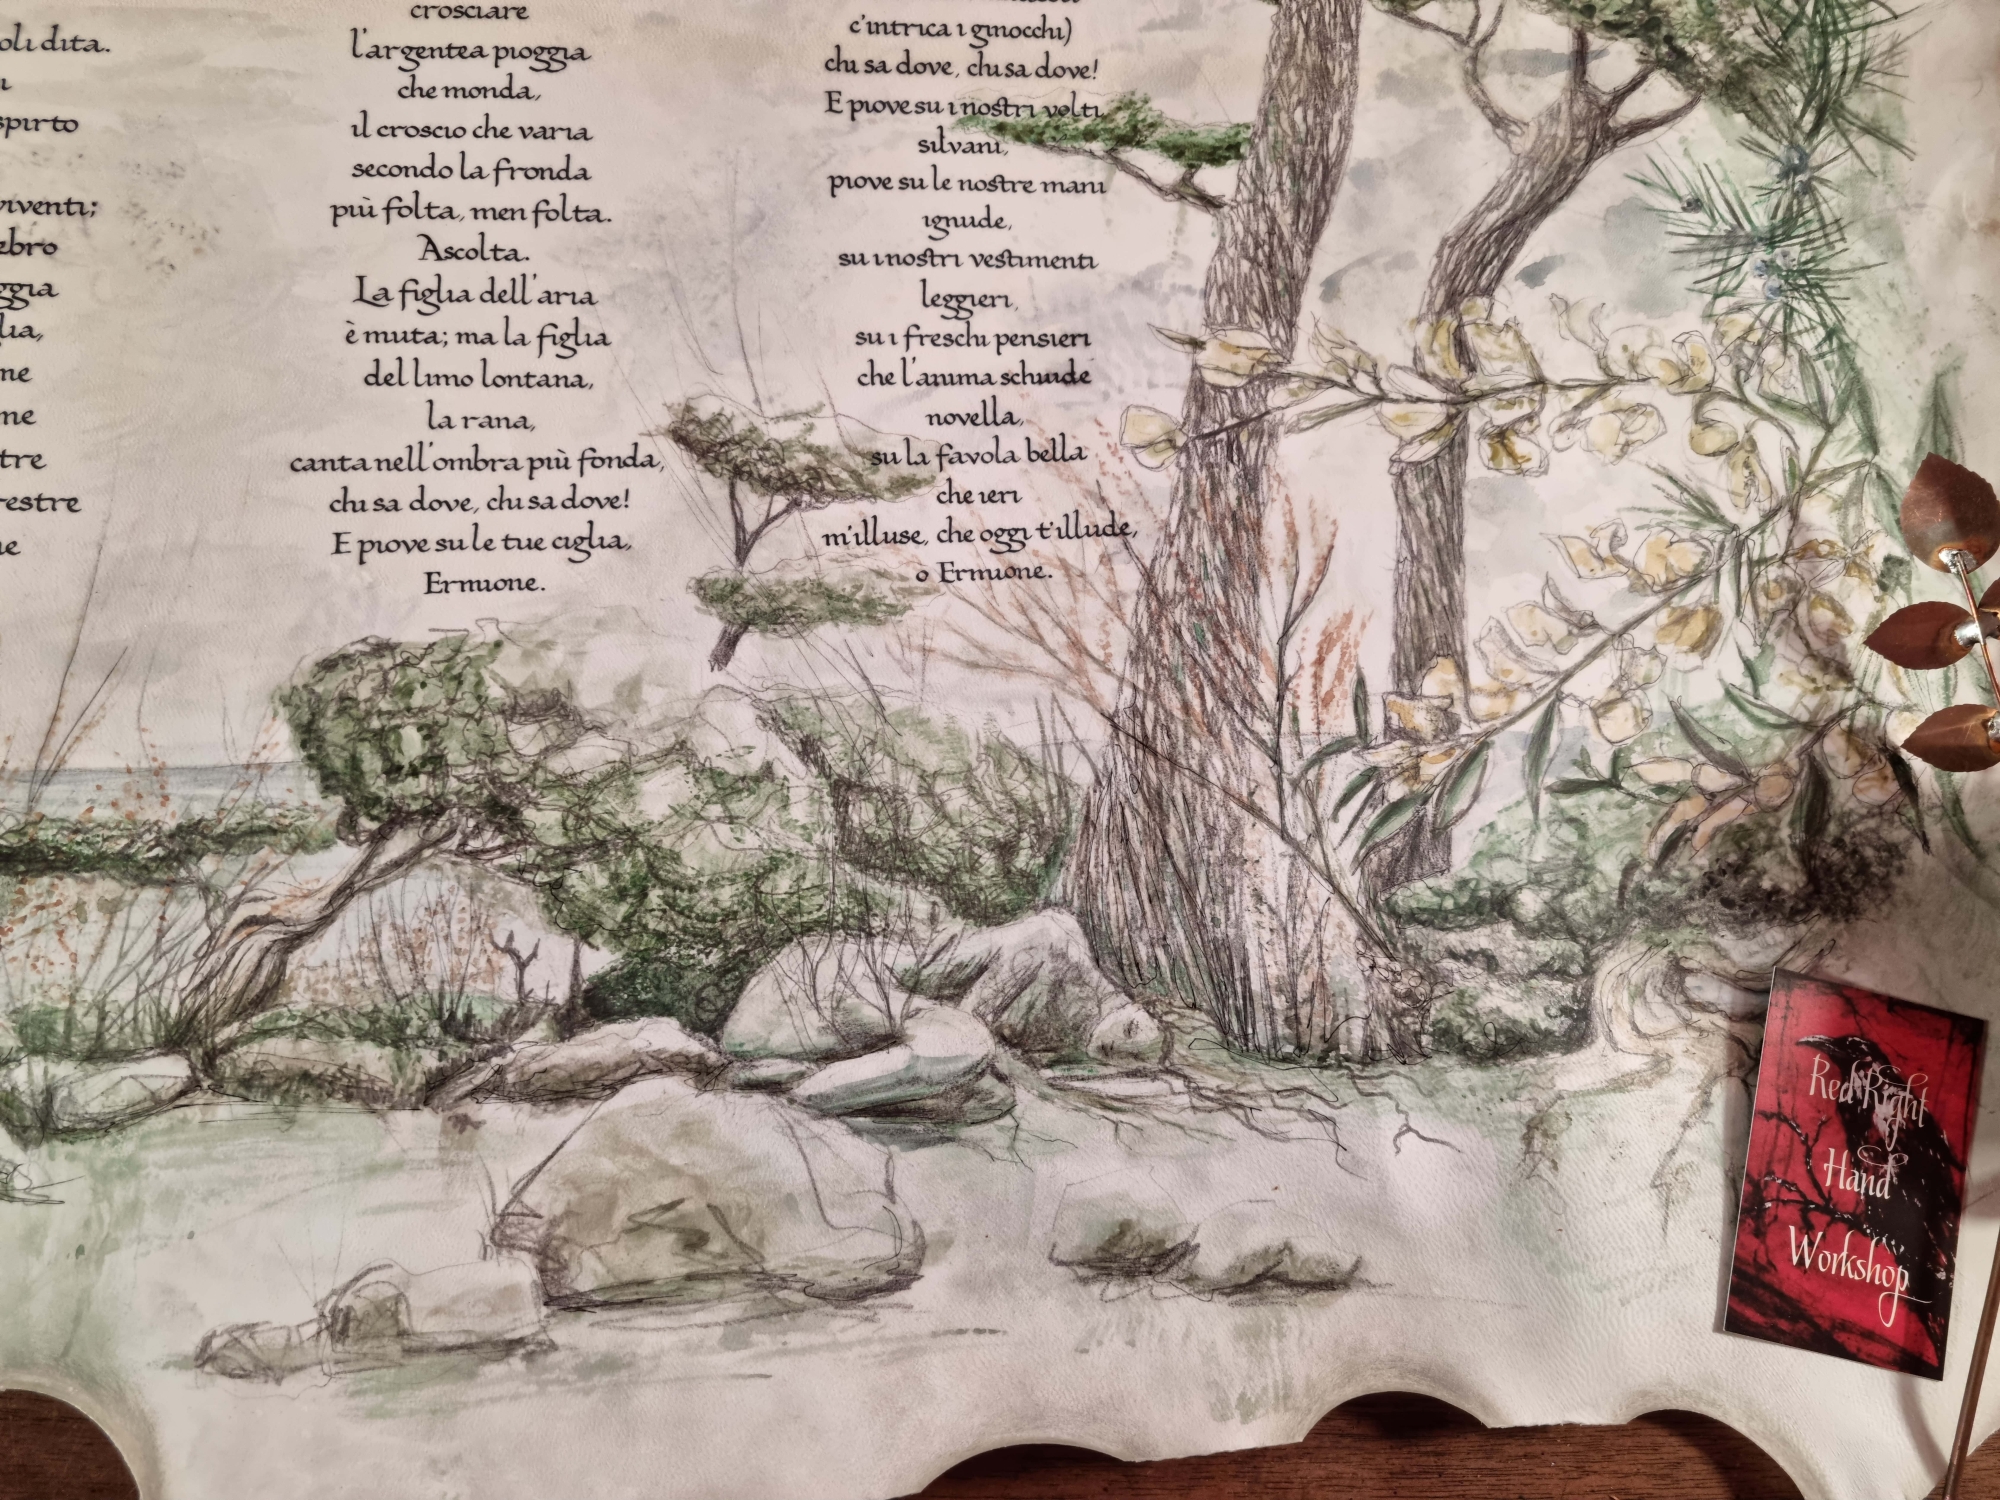 oli dita.
spirto
viventi;
ebro
ggia
lia,
ne
me
tre
restre
ne
crosciare
l'argentea pioggia
che monda,
il croscio che varia
secondo la fronda
più folta, men folta.
Ascolta.
La figlia dell'aria
è muta; ma la figlia
del limo lontana,
la rana,
canta nell'ombra più fonda,
chi sa dove, chi sa dove!
E piove su le tue ciglia,
Ermione.
c'intrica i ginocchi)
chi sa dove, chi sa dove!
E piove su i nostri volti
silvani,
piove su le nostre mani
ignude,
su i nostri vestimenti
leggieri,
su i freschi pensieri
che l'anima schiude
novella,
su la favola bella
che ieri
m'illuse, che oggi t'illude,
o Ermione.
Red Right
Hand
Workshop